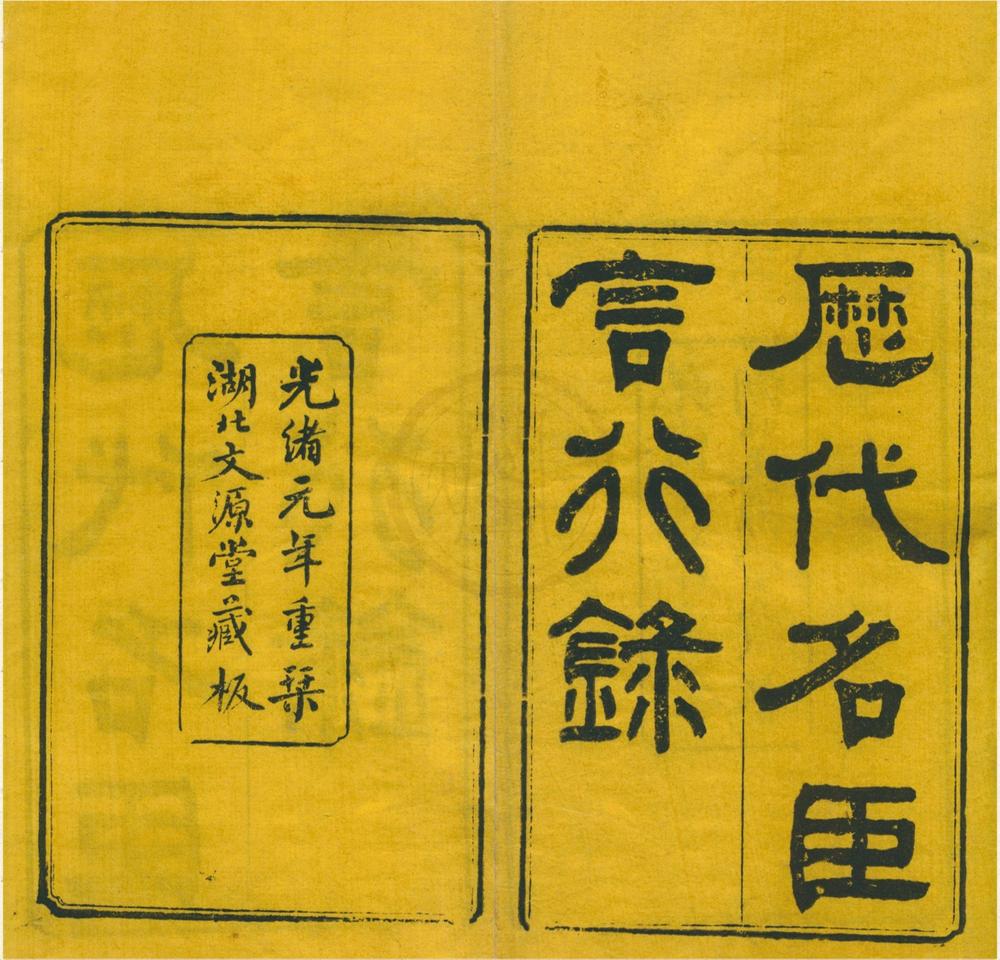 歷代名臣
言行錄
光緒元年重槧
湖北文源堂藏板